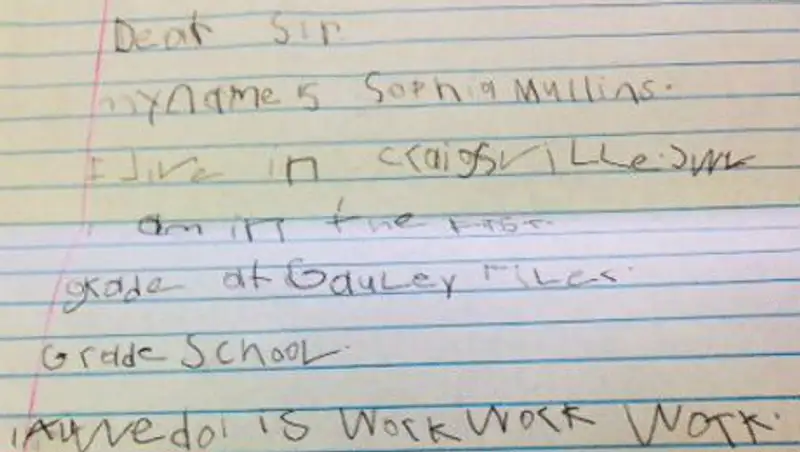 Dear Sir
my name is Sophia Mullins.
I live in craigsville. WV
I am in the First
grade at Gauley River
Grade School.
All we do is Work Work Work.